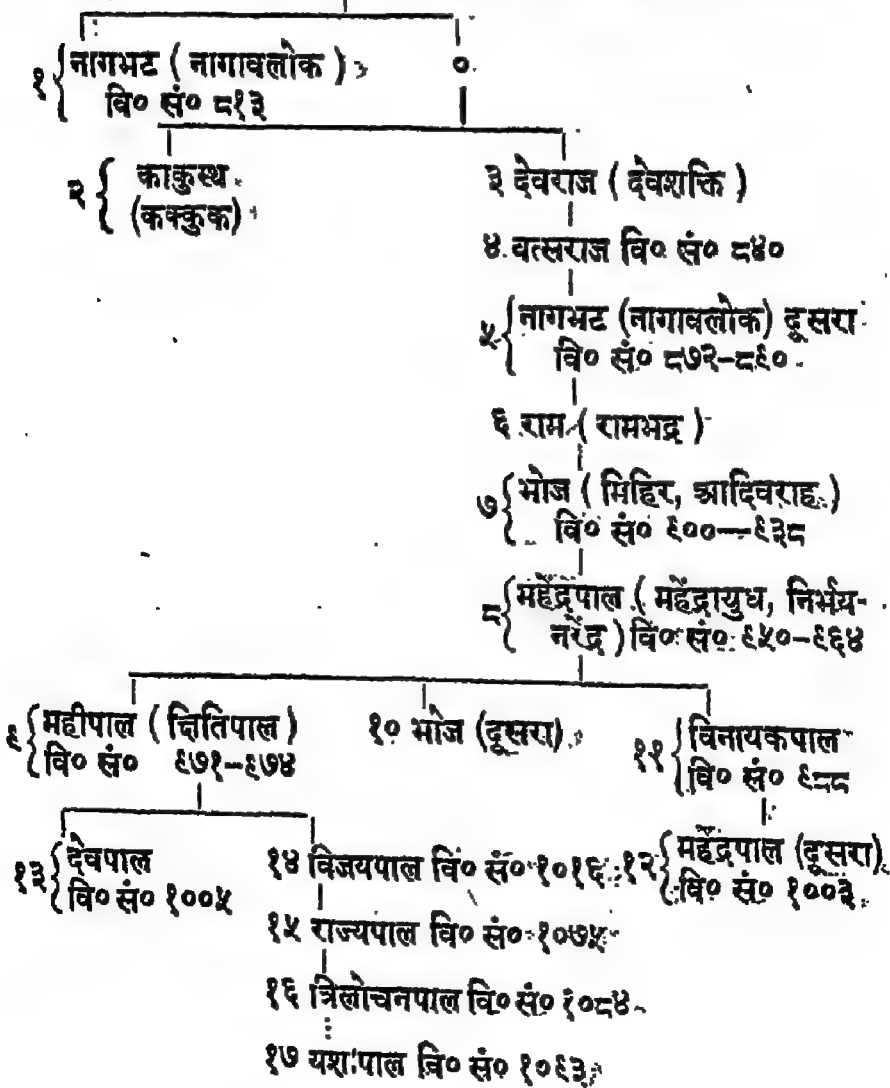 १ नागभट ( नागावलोक )
वि० सं० ८१३
०
२ काकुस्थ
(कक्कुक)
३ देवराज ( देवशक्ति )
४ वत्सराज वि० सं० ८४०
५ नागभट (नागावलोक) दूसरा
वि० सं० ८७२–८९०
६ राम ( रामभद्र )
७ भोज ( मिहिर, आदिवराह )
वि० सं० ९००—९३८
८ महेंद्रपाल ( महेंद्रायुध, निर्भय-
नरेंद्र ) वि० सं० ९५०–९६४
९ महीपाल ( क्षितिपाल )
वि० सं० ९७१–९७४
१० भोज (दूसरा)
११ विनायकपाल
वि० सं० ९८८
१३ देवपाल
वि० सं० १००५
१४ विजयपाल वि० सं० १०१६
१२ महेंद्रपाल (दूसरा)
वि० सं० १००३
१५ राज्यपाल वि० सं० १०७५
१६ त्रिलोचनपाल वि० सं० १०८४
१७ यशःपाल वि० सं० १०९३